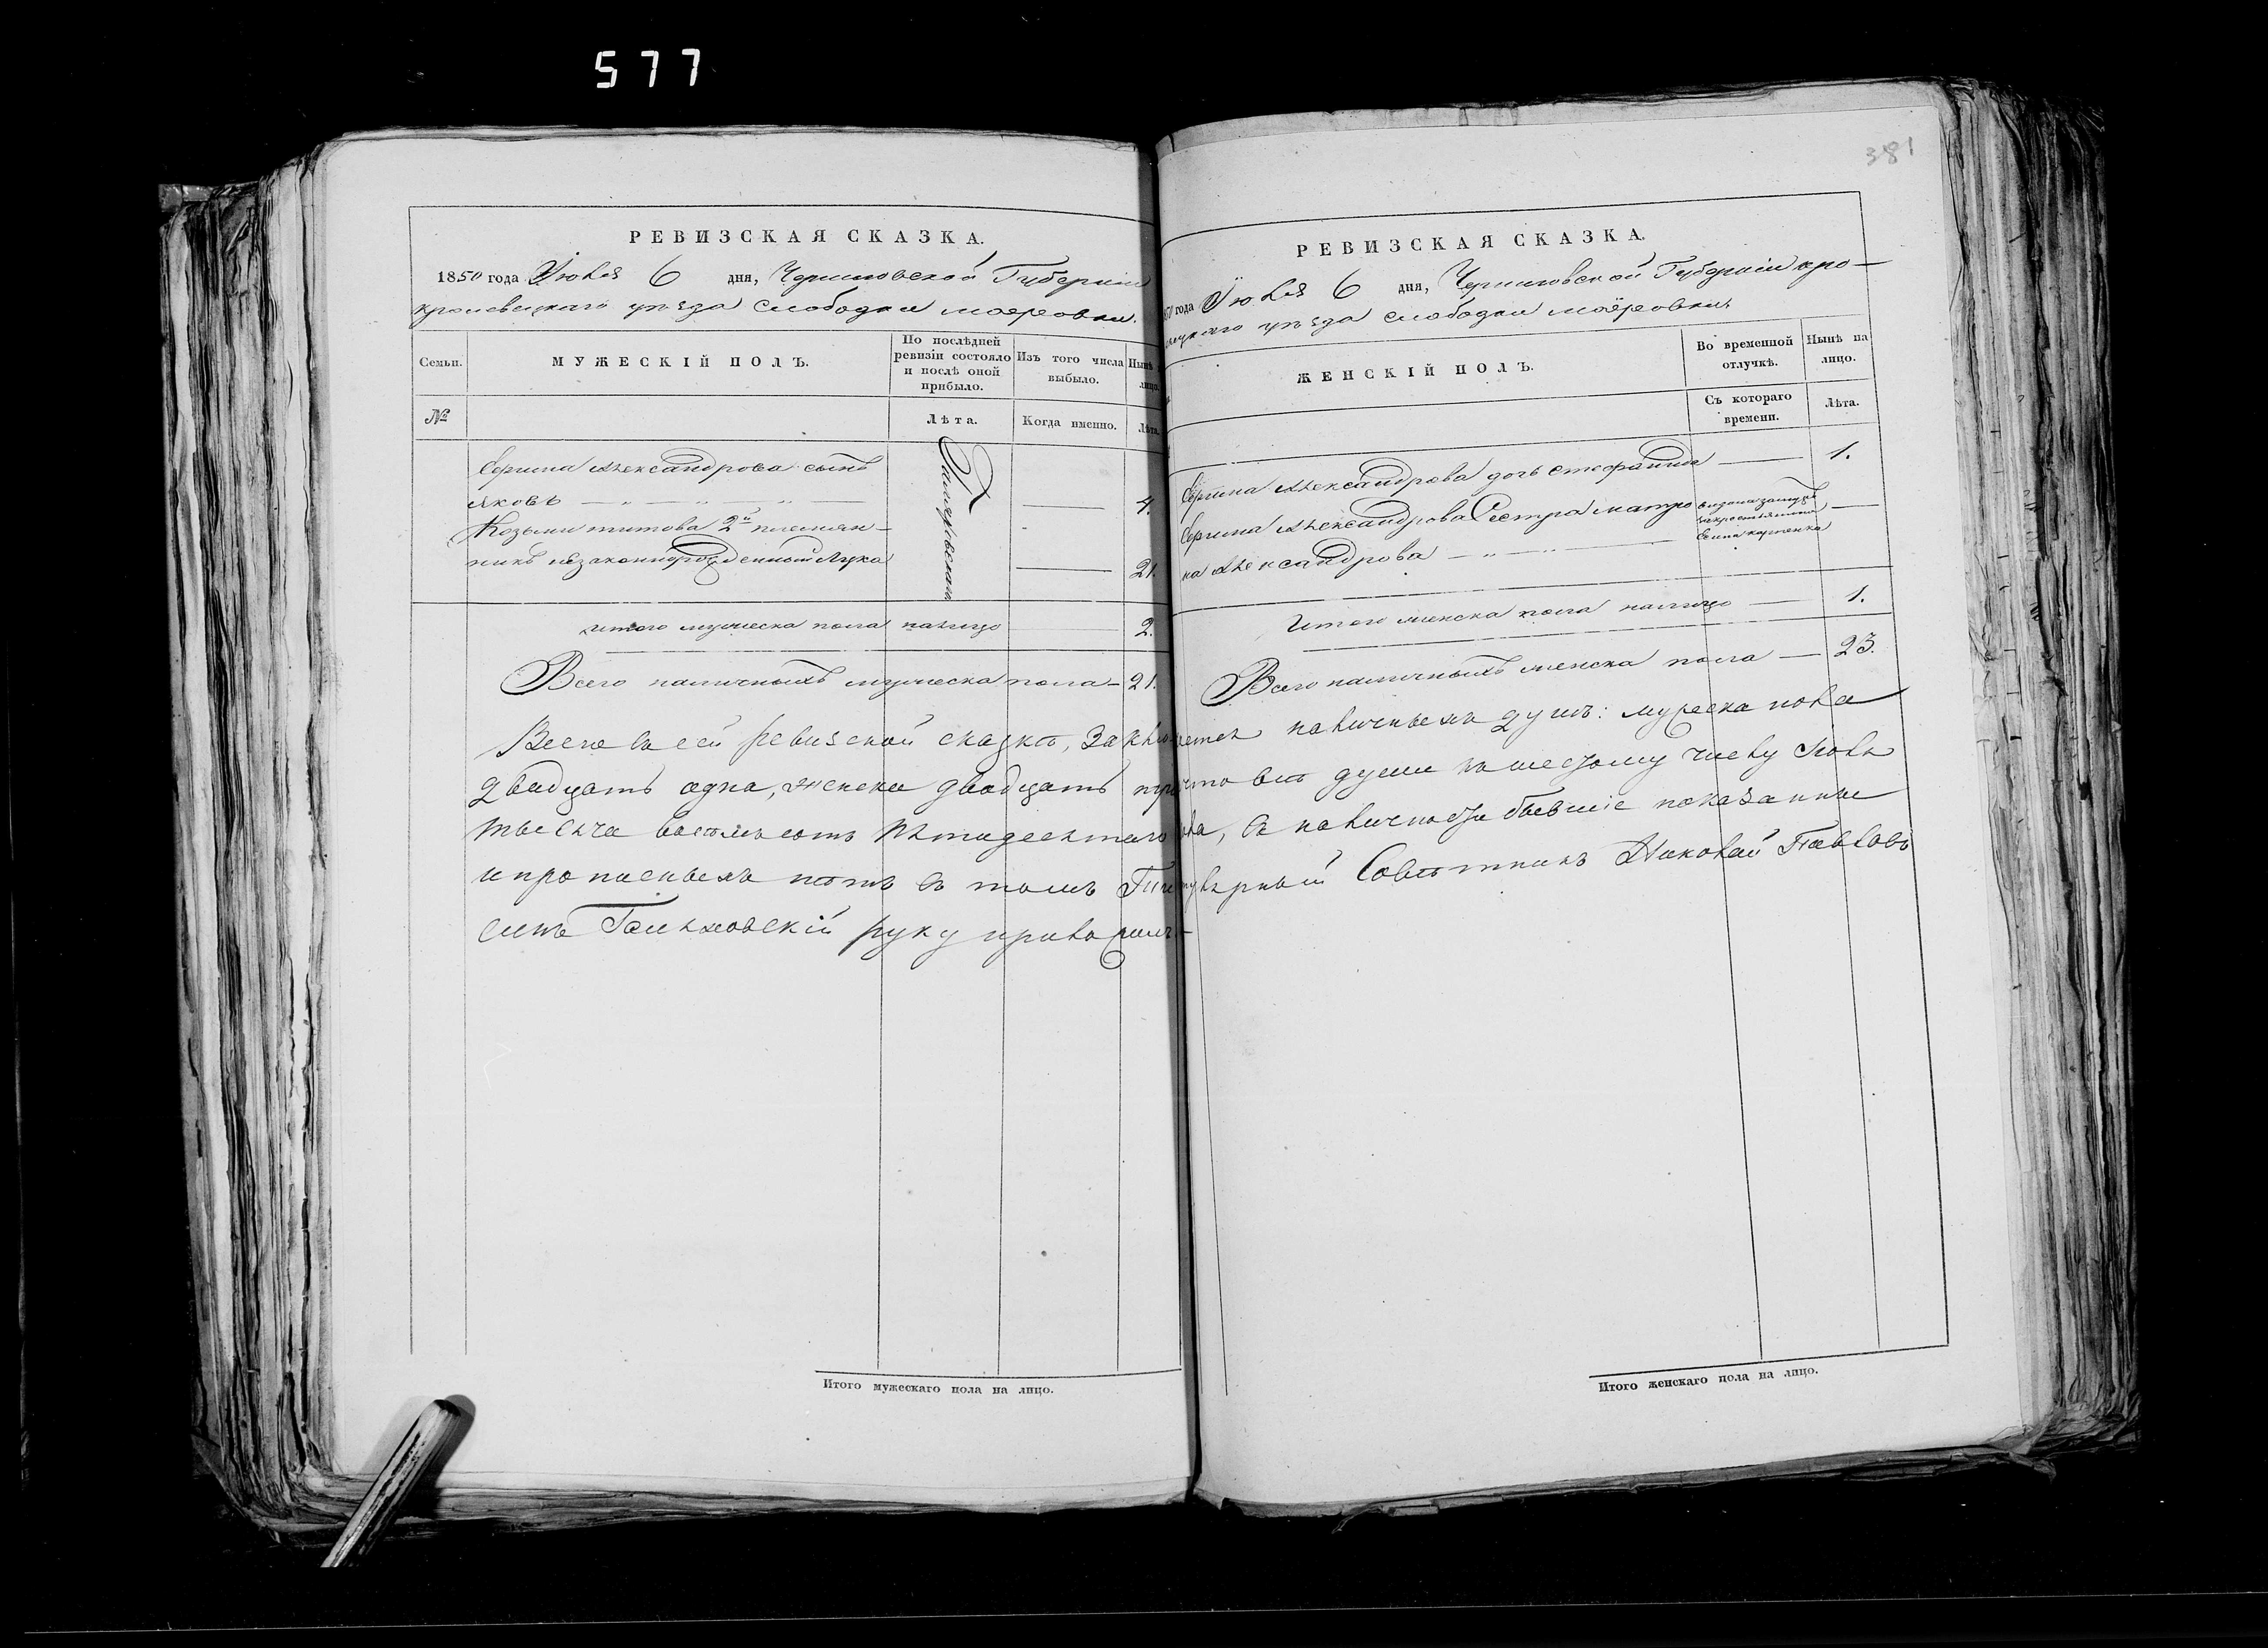 577
381
РЕВИЗСКАЯ СКАЗКА.
1850 года Июля 6 дня, Черниговской Губерніи
кролевецкаго уѣзда слободки
МУЖЕСКІЙ ПОЛЪ.
Семьи.
По послѣдней
ревизіи состояло
и послѣ оной
прибыло.
Изъ того числа
выбыло.
Нынѣ
лицо.
№
Лѣта.
Когда именно.
Лѣта.
Александрова сынъ
Яковъ 4.
Козьмы титова 2й племян-
никъ незаконнорожденный Лука
21.
итого мужеска пола налицо 2.
Всего наличныхъ мужеска пола - 21.
РЕВИЗСКАЯ СКАЗКА.
года Июля 6 дня, Черниговской Губерніи кро-
уѣзда слободки
ЖЕНСКІЙ ПОЛЪ.
Во временной
отлучкѣ.
Нынѣ на
лицо.
Съ котораго
времени.
Лѣта.
Александрова дочь 1.
Александрова Сестра матро
на Александрова
Итого женска пола налицо 1.
Всего наличныхъ женска пола — 23.
Всего въ сей ревизской сказкѣ, наличныхъ душъ: мужеска пола
двадцать одна, женска двадцать души
тысяча восемьсотъ пятидесятаго въ наличности бывшіе показанные
и прописныхъ нѣтъ въ томъ Титулярный Совѣтникъ Николай Павловъ
сынъ руку приложилъ
Итого мужескаго пола на лицо.
Итого женскаго пола на лицо.